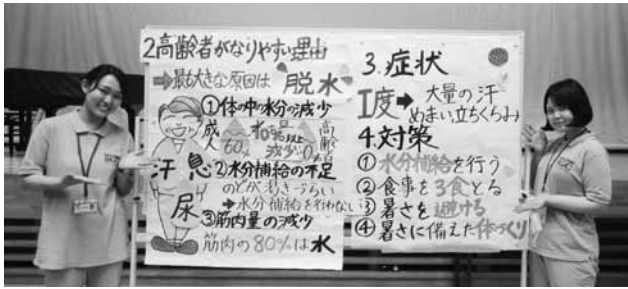 2高齢者がなりやすい理由
➡最も大きな原因は 脱水
①体の中の水分の減少
成人
60%
10%以上
減少
高齢
汗 息
尿
②水分補給の不足
のどが渇きづらい
➡水分補給を行わない
③筋肉量の減少
筋肉の80%は水
3.症状
Ⅰ度➡大量の汗
めまい、立ちくらみ
4.対策
①水分補給を行う
②食事を3食とる
③暑さを避ける
④暑さに備えた体づくり